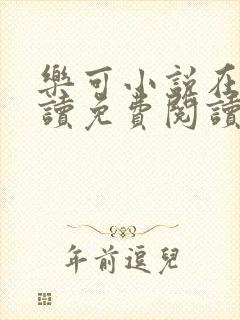 樂可小說在
讀免費閱讀
年前逗兒